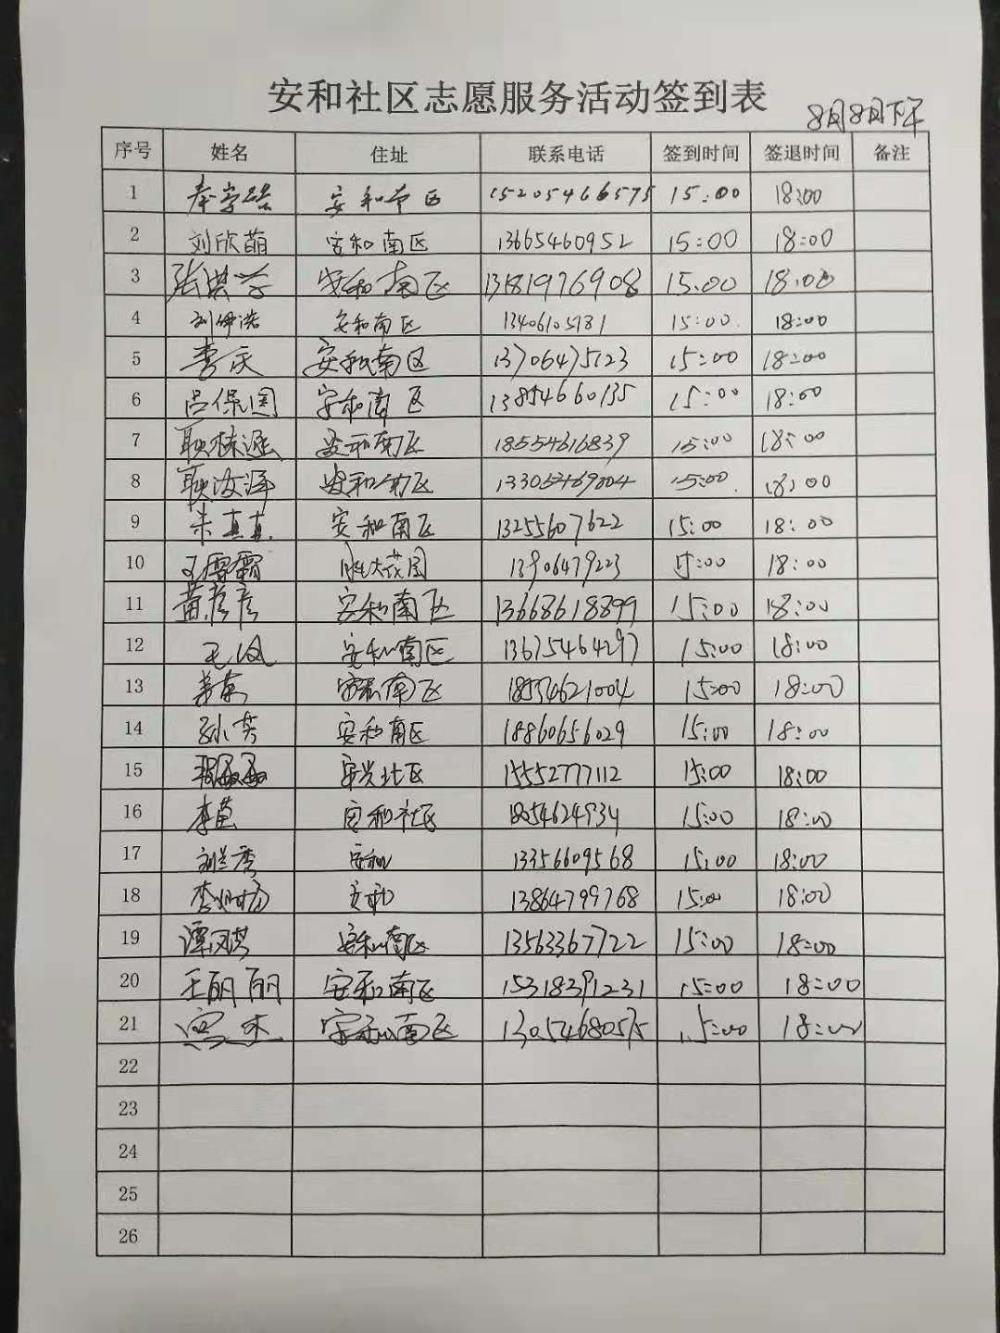 安和社区志愿服务活动签到表
8月8日下午
序号 姓名 住址 联系电话 签到时间 签退时间 备注
1 安和南区 15205466575 15:00 18:00
2 刘欣萌 安和南区 13665460952 15:00 18:00
3 张洪学 安和南区 13181976908 15:00 18:00
4 刘伊浩 安和南区 15:00 18:00
5 李庆 安和南区 13706475123 15:00 18:00
6 吕保国 安和南区 13854660135 15:00 18:00
7 安和南区 18554616839 15:00 18:00
8 耿汝泽 安和南区 15:00 18:00
9 朱真真 安和南区 13255607622 15:00 18:00
10 王雪霜 15:00 18:00
11 黄彦彦 安和南区 13668618899 15:00 18:00
12 安和南区 13675464297 15:00 18:00
13 安和南区 18554621004 15:00 18:00
14 孙芳 安和南区 18860656029 15:00 18:00
15 安兴北区 15552777112 15:00 18:00
16 李莹 安和社区 15:00 18:00
17 刘兰香 安和 13356609568 15:00 18:00
18 安和 13864799768 15:00 18:00
19 谭凤琪 安和南区 13563367722 15:00 18:00
20 王丽丽 安和南区 15318391231 15:00 18:00
21 安和南区 13054680575 15:00 18:00
22
23
24
25
26